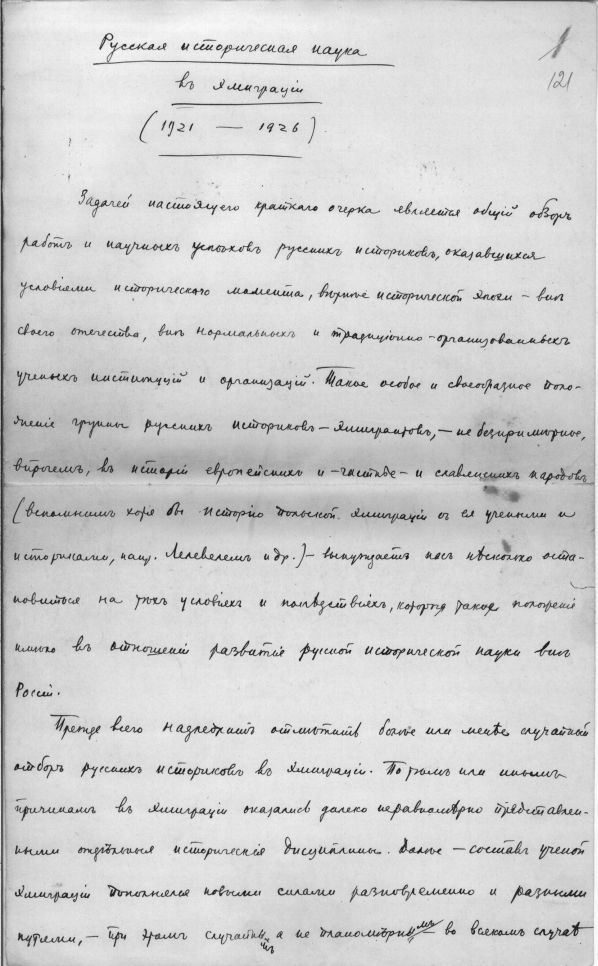 Русская историческая наука
въ эмиграціи
(1921 — 1926).
1
121
Задачей настоящего краткаго очерка является общій обзоръ
работъ и научныхъ успѣховъ русскихъ историковъ, оказавшихся
условіями историческаго момента, вѣрнѣе исторической эпохи – внѣ
своего отечества, внѣ нормальныхъ и традиціонно-организованныхъ
ученыхъ институцій и организацій. Такое особое и своеобразное поло-
женіе группы русскихъ историковъ – эмигрантовъ, – не безпримѣрное,
впрочемъ, въ исторіи европейскихъ и – частью – и славянскихъ народовъ
(вспомнимъ хотя бы исторію польской эмиграціи съ ея учеными и
историками, напр. Лелевелемъ и др.) – вынуждаетъ насъ нѣсколько оста-
новиться на тѣхъ условіяхъ и послѣдствіяхъ, которыя такое положеніе
имѣло въ отношеніи развитія русской исторической науки внѣ
Россіи.
Прежде всего надлежитъ отмѣтить болѣе или менѣе случайный
отборъ русскихъ историковъ въ эмиграціи. По тѣмъ или инымъ
причинамъ въ эмиграціи оказались далеко неравномѣрно представлен-
ными отдѣльныя историческія дисциплины. Далѣе – составъ ученой
эмиграціи пополнялся новыми силами разновременно и разными
путями, – при этомъ случайнымъ, а не планомѣрнымъ – во всякомъ случаѣ